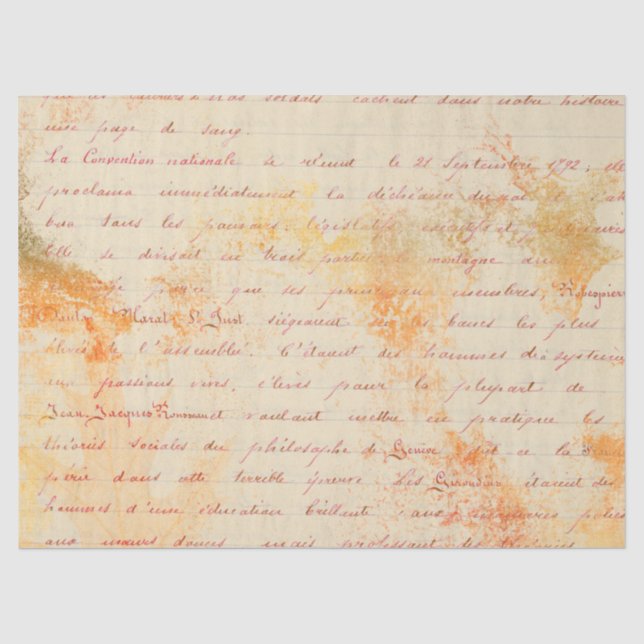 que les lauriers nos soldats cachent dans notre histoire
une page de sang.
La Convention nationale se réunit le 21 Septembre 1792; elle
proclama immédiatement la déchéance du roi et
tous les pouvoirs: législatifs, exécutifs et
Elle se divisait en trois parties: la montagne
parce que ses principaux membres, Robespierre
Danton Marat, St Just siégeaient sur les bancs les plus
élevés de l'assemblée. C'étaient des hommes de système
aux passions vives, élevés pour la plupart de
Jean-Jacques Rousseau et voulant mettre en pratique les
théories sociales du philosophe de Genève ce la
périr dans cette terrible épreuve. Les Girondins étaient des
hommes d'une éducation brillante, aux manières polies
aux mœurs douces mais professant des théories